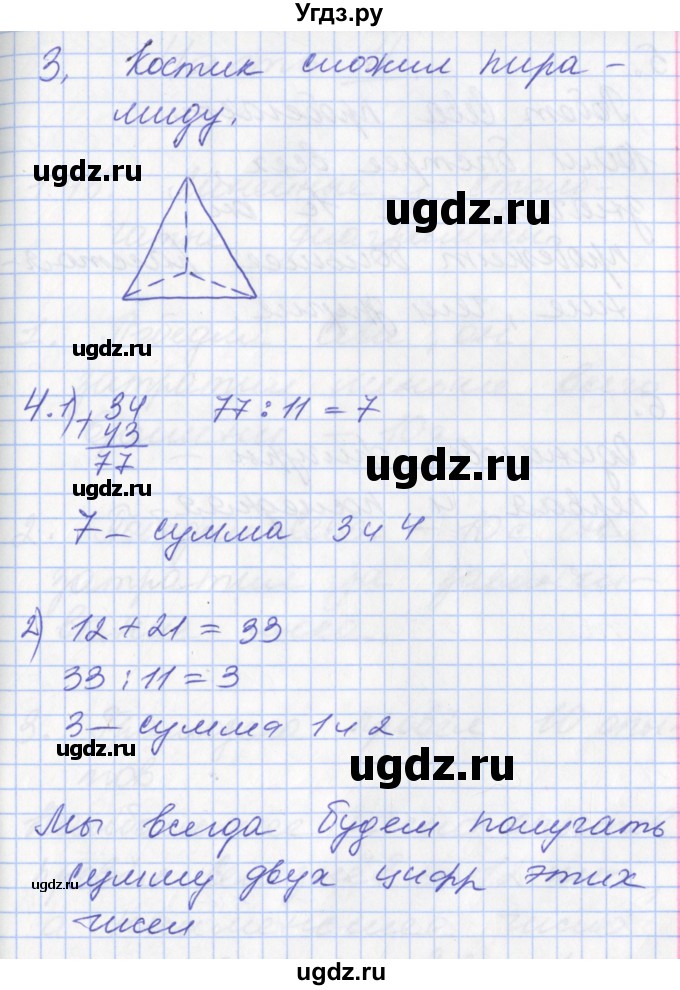 Угдз.ру
3. Костик сложил пира-
миду.
ugdz.ru
ugdz.ru
ugdz.ru
4. 1) + 34 77 : 11 = 7
43
77
ugdz.ru
ugdz.ru
7 – сумма 3 и 4
2) 12 + 21 = 33
33 : 11 = 3
3 – сумма 1 и 2
ugdz.ru
ugdz.ru
Мы всегда будем получать
сумму двух цифр этих
ugdz.ru
чисел
ugdz.ru
ugdz.ru